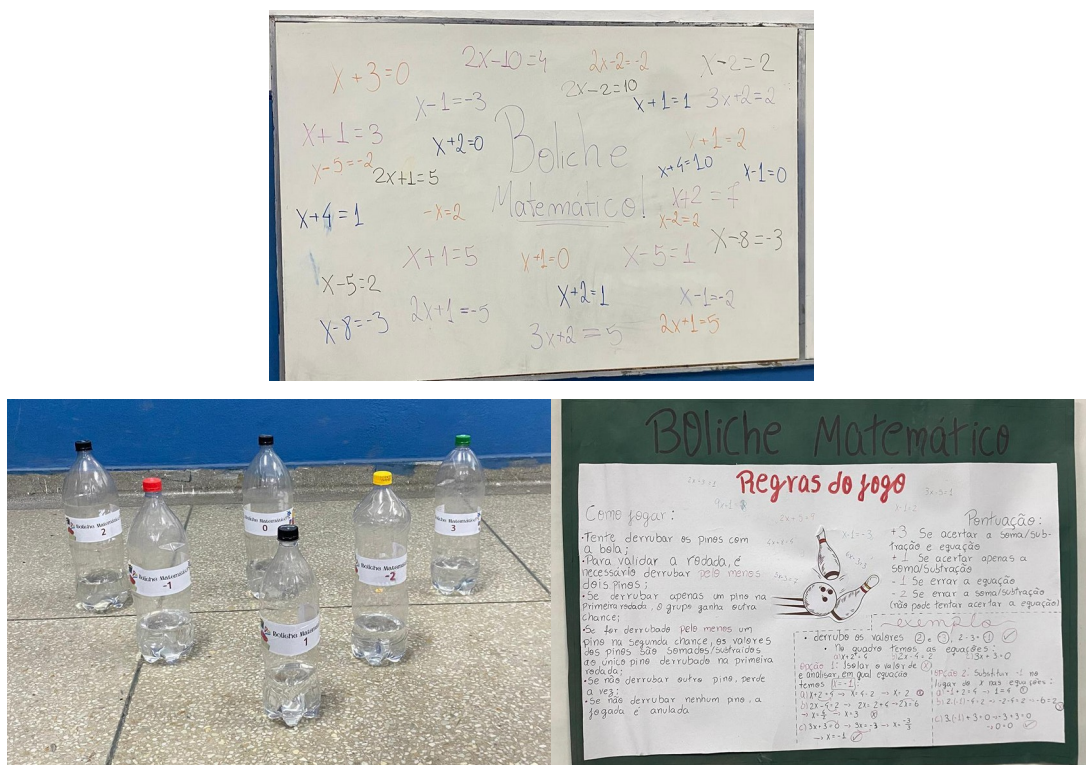 x+3=0
2x-10=4
2x-2=-2
x-2=2
x-1=-3
2x-2=10
x+1=1
3x+2=2
x+1=3
x+2=0
Boliche
Matemático!
x+1=2
x-5=-2
2x+1=5
x+4=10
x-1=0
x+4=1
-x=2
x+2=7
x-2=2
x-8=-3
x+1=5
x+1=0
x-5=1
x-5=2
x+2=1
x-1=-2
x-8=-3
2x+1=-5
3x+2=5
2x+1=5
Boliche Matemático
2
Boliche Matemático
-1
Boliche Matemático
0
Boliche Matemático
1
Boliche Matemático
-2
Boliche Matemático
3
Boliche Matemático
Regras do jogo
Como jogar:
•Tente derrubar os pinos com
a bola;
•Para validar a rodada, é
necessário derrubar pelo menos
dois pinos;
•Se derrubar apenas um pino na
primeira rodada, o grupo ganha outra
chance;
•Se for derrubado pelo menos um
pino na segunda chance, os valores
dos pinos são somados/subtraídos
ao único pino derrubado na primeira
rodada;
•Se não derrubar outro pino, perde
a vez;
•Se não derrubar nenhum pino, a
jogada é anulada
Pontuação:
+3 Se acertar a soma/sub-
tração e equação
+1 Se acertar apenas a
soma/subtração
-1 Se errar a equação
-2 Se errar a soma/subtração
(não pode tentar acertar a equação)
exemplo
• derrubo os valores
• No quadro temos as equações:
a) x+2=4
b) 2x-4=2
c) 3x+3=0
Opção 1: Isolar o valor de x
e analisar em qual equação
temos x=-1
a) x+2=4 → x=4-2 → x=2
b) 2x-4=2 → 2x=2+4 → 2x=6
→ x=6/2 → x=3
c) 3x+3=0 → 3x=-3 → x=-3/3
→ x=-1
Opção 2: Substituir -1 no
lugar do x nas equações:
a) -1+2=4 → 1=4
b) 2.(-1)-4=2 → -2-4=2 → -6=2
c) 3.(-1)+3=0 → -3+3=0
→ 0=0